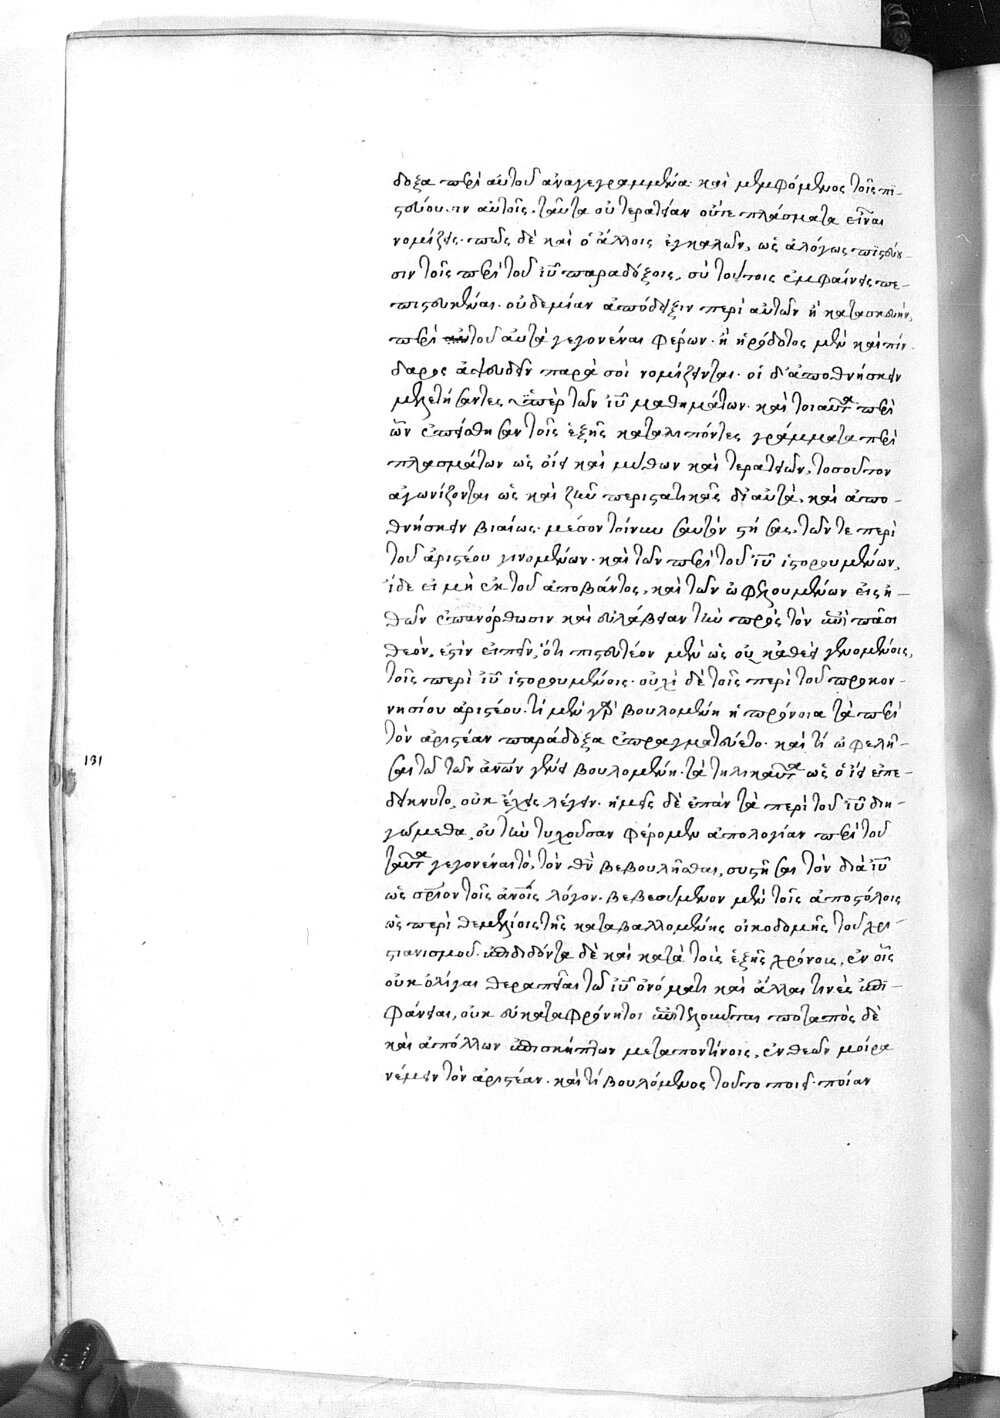 δοξα περὶ αὐτοῦ ἀναγεγραμμένα· καὶ μεμφόμενος τοῖς πι-
στεύουσιν αὐτοῖς, ταῦτα οὐ τερατείαν οὔτε πλάσματα εἶναι
νομίζεις· πῶς δὲ καὶ ὁ ἄλλοις ἐγκαλῶν, ὡς ἀλόγως πιστεύου-
σιν τοῖς περὶ τοῦ ἰῦ παραδόξοις, σὺ τούτοις ἐμφαίνεις πε-
πιστευκέναι· οὐδεμίαν ἀπόδειξιν περὶ αὐτῶν ἢ κατασκευὴν,
περὶ τοῦ αὐτὰ γεγονέναι φέρων· ἢ ἡρόδοτος μὲν καὶ πίν-
δαρος ἀψευδεῖν παρὰ σοὶ νομίζονται· οἱ δ' ἀποθνήσκειν
μελετήσαντες ὑπὲρ τῶν ἰῦ μαθημάτων· καὶ τοιαῦτα περὶ
ὧν ἐπείσθησαν τοῖς ἑξῆς καταλιπόντες γράμματα περὶ
πλασμάτων ὡς οἴει καὶ μύθων καὶ τερατειῶν, τοσοῦτον
ἀγωνίζονται ὡς καὶ ζῆν περιστατικῶς δι' αὐτὰ, καὶ ἀπο-
θνήσκειν βιαίως· μέσον τοίνυν σαυτὸν στήσας, τῶν τε περὶ
τοῦ ἀριστέου γινομένων· καὶ τῶν περὶ τοῦ ἰῦ ἱστορουμένων,
ἴδε εἰ μὴ ἐκ τοῦ ἀποβάντος, καὶ τῶν ὠφελουμένων εἰς ἠ-
θῶν ἐπανόρθωσιν καὶ εὐλάβειαν τὴν πρὸς τὸν ἐπὶ πᾶσι
θεόν, ἐστὶν εἰπεῖν, ὅτι πιστευτέον μὲν ὡς οὐκ ἀθεεὶ γενομένοις,
τοῖς περὶ ἰῦ ἱστορουμένοις· οὐχὶ δὲ τοῖς περὶ τοῦ προκον-
νησίου ἀριστέου· τί μὲν γὰρ βουλομένη ἡ πρόνοια τὰ περὶ
τὸν ἀριστέαν παράδοξα ἐπραγματεύετο· καὶ τί ὠφελῆ-
σαι τῶ τῶν ἀνῶν γένει βουλομένη· τὰ τηλικαῦτα ὡς οἴει ἐπε-
δείκνυτο, οὐκ ἔχεις λέγειν· ἡμεῖς δὲ ἐπὰν τὰ περὶ τοῦ ἰῦ διη-
γώμεθα, οὐ τὴν τυχοῦσαν φέρομεν ἀπολογίαν περὶ τοῦ
ταῦτα γεγονέναι τὸ, τὸν θν βεβουλῆσθαι, συστῆσαι τὸν διὰ ἰῦ
ὡς σρίον τοῖς ἀνοῖς λόγον· βεβεσυμένον μὲν τοῖς ἀποστόλοις
ὡσπερὶ θεμελίοις τῆς καταβαλλομένης οἰκοδομῆς τοῦ χρι-
στιανισμοῦ· ἐπιδιδόντα δὲ καὶ κατὰ τοὺς ἑξῆς χρόνους, ἐν οἷς
οὐκ ὀλίγαι θεραπεῖαι τῶ ἰῦ ὀνόματι καὶ ἄλλαι τινὲς ἐπι-
φάνειαι, οὐκ εὐκαταφρόνητοι ἐπιτελοῦνται ποταπὸς δὲ
καὶ ἀπόλλων ἐπισκήπτων μεταποντίνοις, ἐν θεῶν μοίρα
νέμειν τὸν ἀριστέαν· καὶ τί βουλόμενος τοῦτο ποιεῖ· ποίαν
131